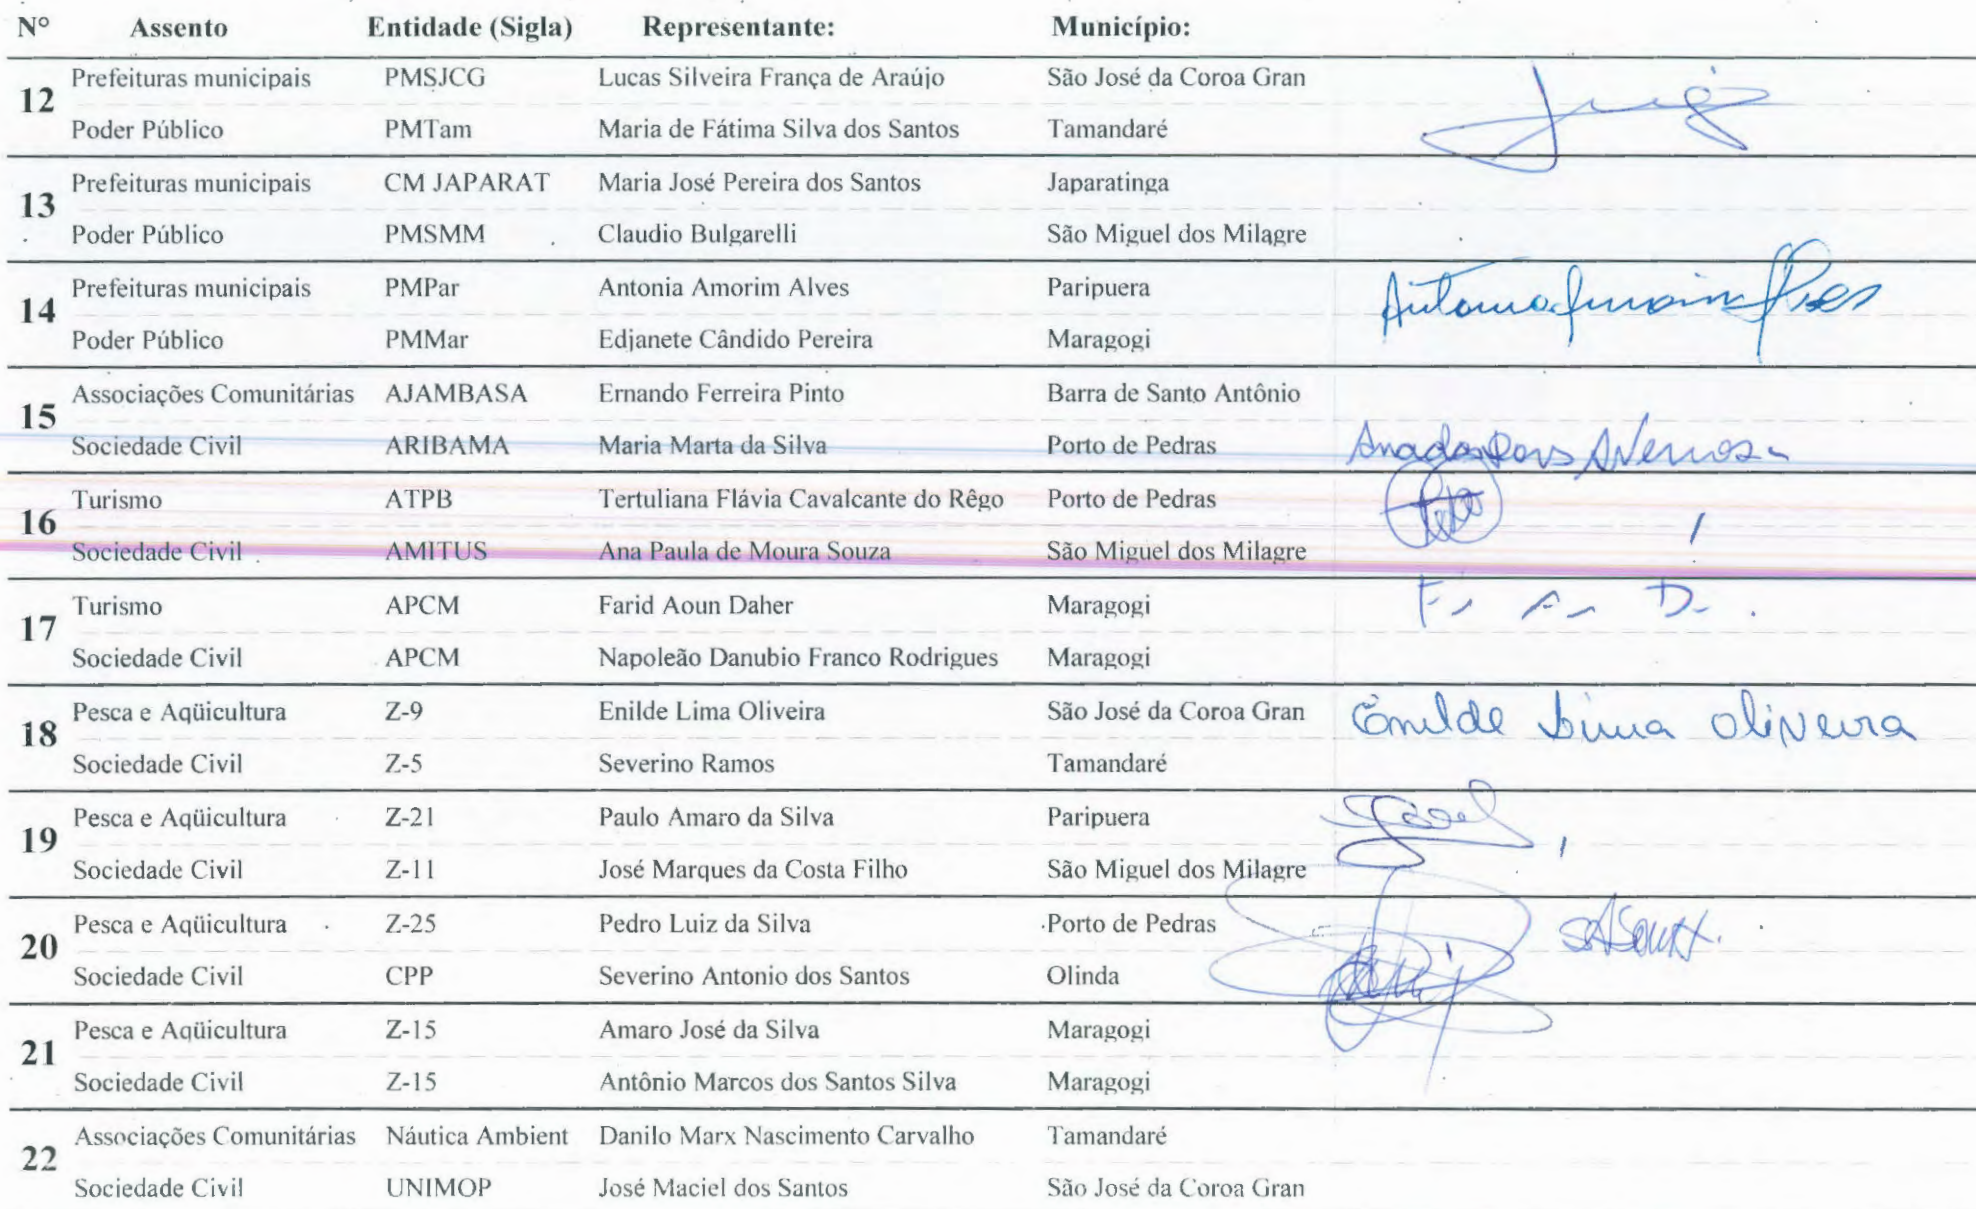 Nº Assento Entidade (Sigla) Representante: Município:
12
Prefeituras municipais PMSJCG Lucas Silveira França de Araújo São José da Coroa Gran
Poder Público PMTam Maria de Fátima Silva dos Santos Tamandaré
13
Prefeituras municipais CM JAPARAT Maria José Pereira dos Santos Japaratinga
Poder Público PMSMM Claudio Bulgarelli São Miguel dos Milagre
14
Prefeituras municipais PMPar Antonia Amorim Alves Paripuera
Poder Público PMMar Edjanete Cândido Pereira Maragogi
Antonia Amorim Alves
15
Associações Comunitárias AJAMBASA Ernando Ferreira Pinto Barra de Santo Antônio
Sociedade Civil ARIBAMA Maria Marta da Silva Porto de Pedras
16
Turismo ATPB Tertuliana Flávia Cavalcante do Rêgo Porto de Pedras
Sociedade Civil AMITUS Ana Paula de Moura Souza São Miguel dos Milagre
17
Turismo APCM Farid Aoun Daher Maragogi F. A. D.
Sociedade Civil APCM Napoleão Danubio Franco Rodrigues Maragogi
18
Pesca e Aqüicultura Z-9 Enilde Lima Oliveira São José da Coroa Gran Enilde Lima Oliveira
Sociedade Civil Z-5 Severino Ramos Tamandaré
19
Pesca e Aqüicultura Z-21 Paulo Amaro da Silva Paripuera
Sociedade Civil Z-11 José Marques da Costa Filho São Miguel dos Milagre
20
Pesca e Aqüicultura Z-25 Pedro Luiz da Silva Porto de Pedras
Sociedade Civil CPP Severino Antonio dos Santos Olinda
21
Pesca e Aqüicultura Z-15 Amaro José da Silva Maragogi
Sociedade Civil Z-15 Antônio Marcos dos Santos Silva Maragogi
22
Associações Comunitárias Náutica Ambient Danilo Marx Nascimento Carvalho Tamandaré
Sociedade Civil UNIMOP José Maciel dos Santos São José da Coroa Gran